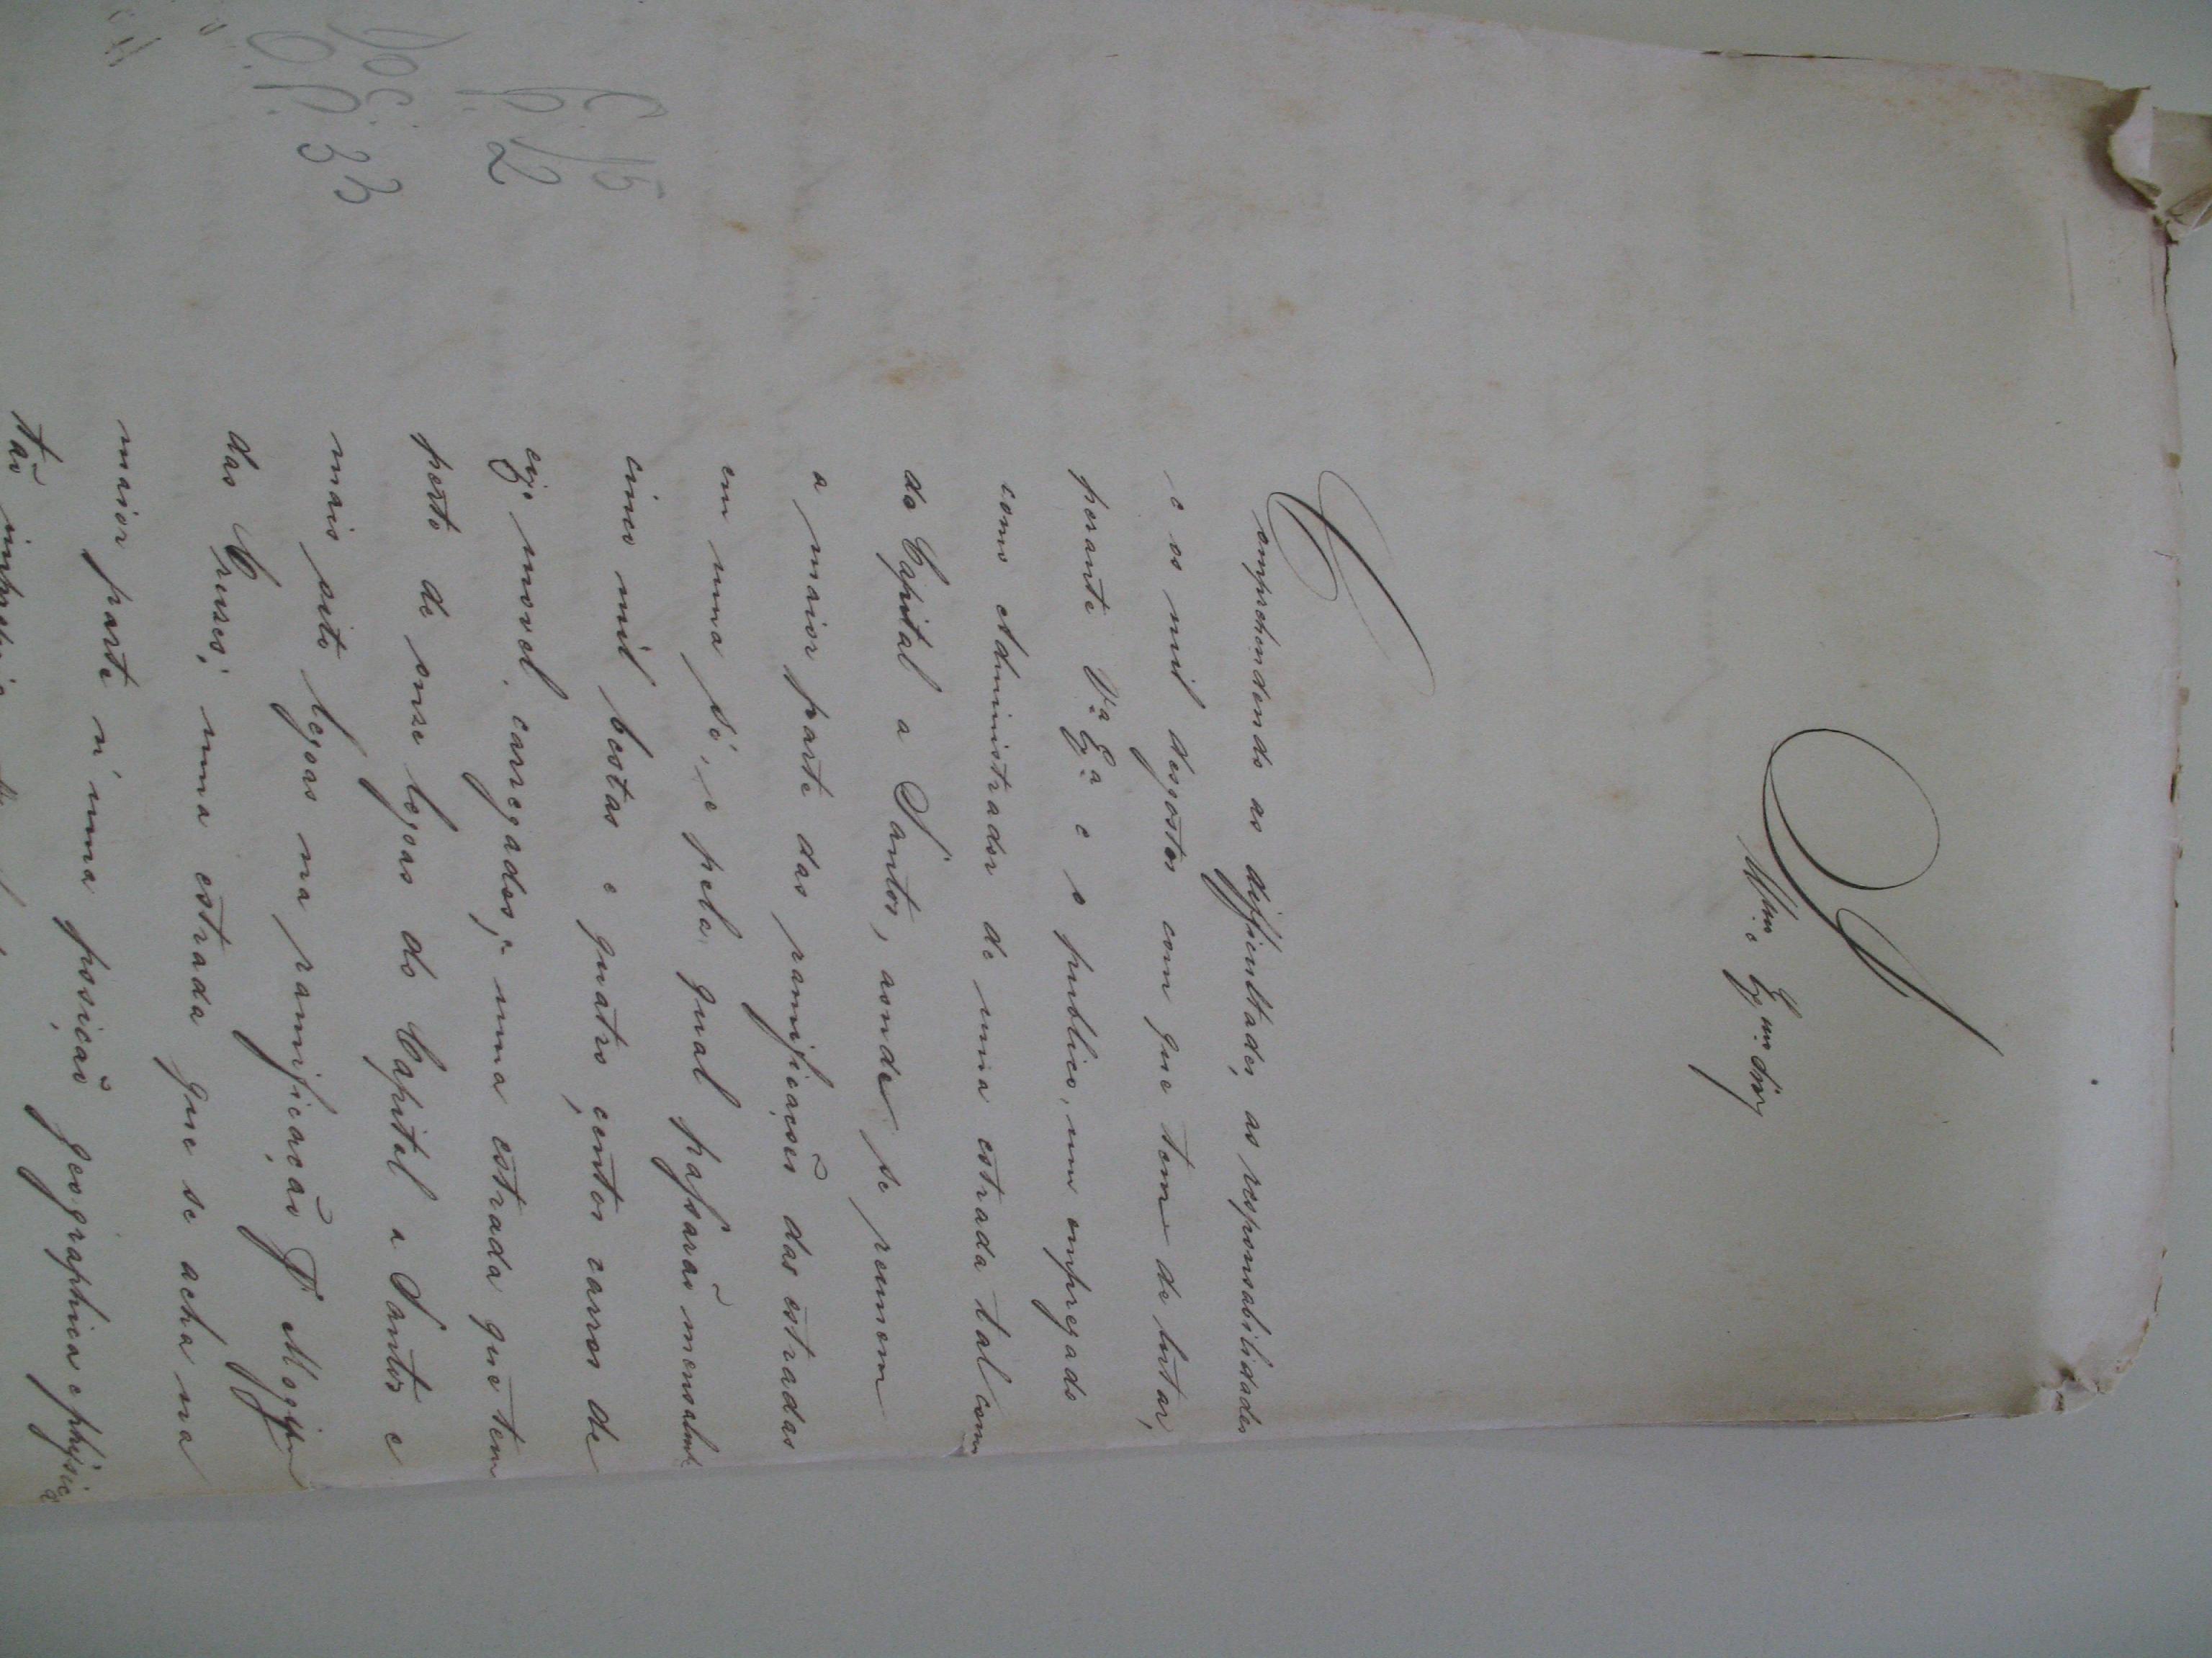 Illm.o Exm.o Snr.
Comprehendendo as difficuldades, as responsabilidades
e os mil desgostos com que tem de lutar,
perante V.a Ex.a e o publico, um empregado
como Administrador de uma estrada tal como
da Capital a Santos, aonde se reunem
a maior parte das ramificações das estradas
em uma só, e pela qual passarão mensalm.te
cinco mil bestas e quatro centos carros de
eixo movel, carregados; uma estrada que tem
perto de onze legoas da Capital a Santos e
mais oito legoas na ramificação Mogy
das Cruzes; uma estrada que se acha na
maior parte n'uma posição geographica e physica
tão
C. 15
P. 2
Doc. 33
O.P.